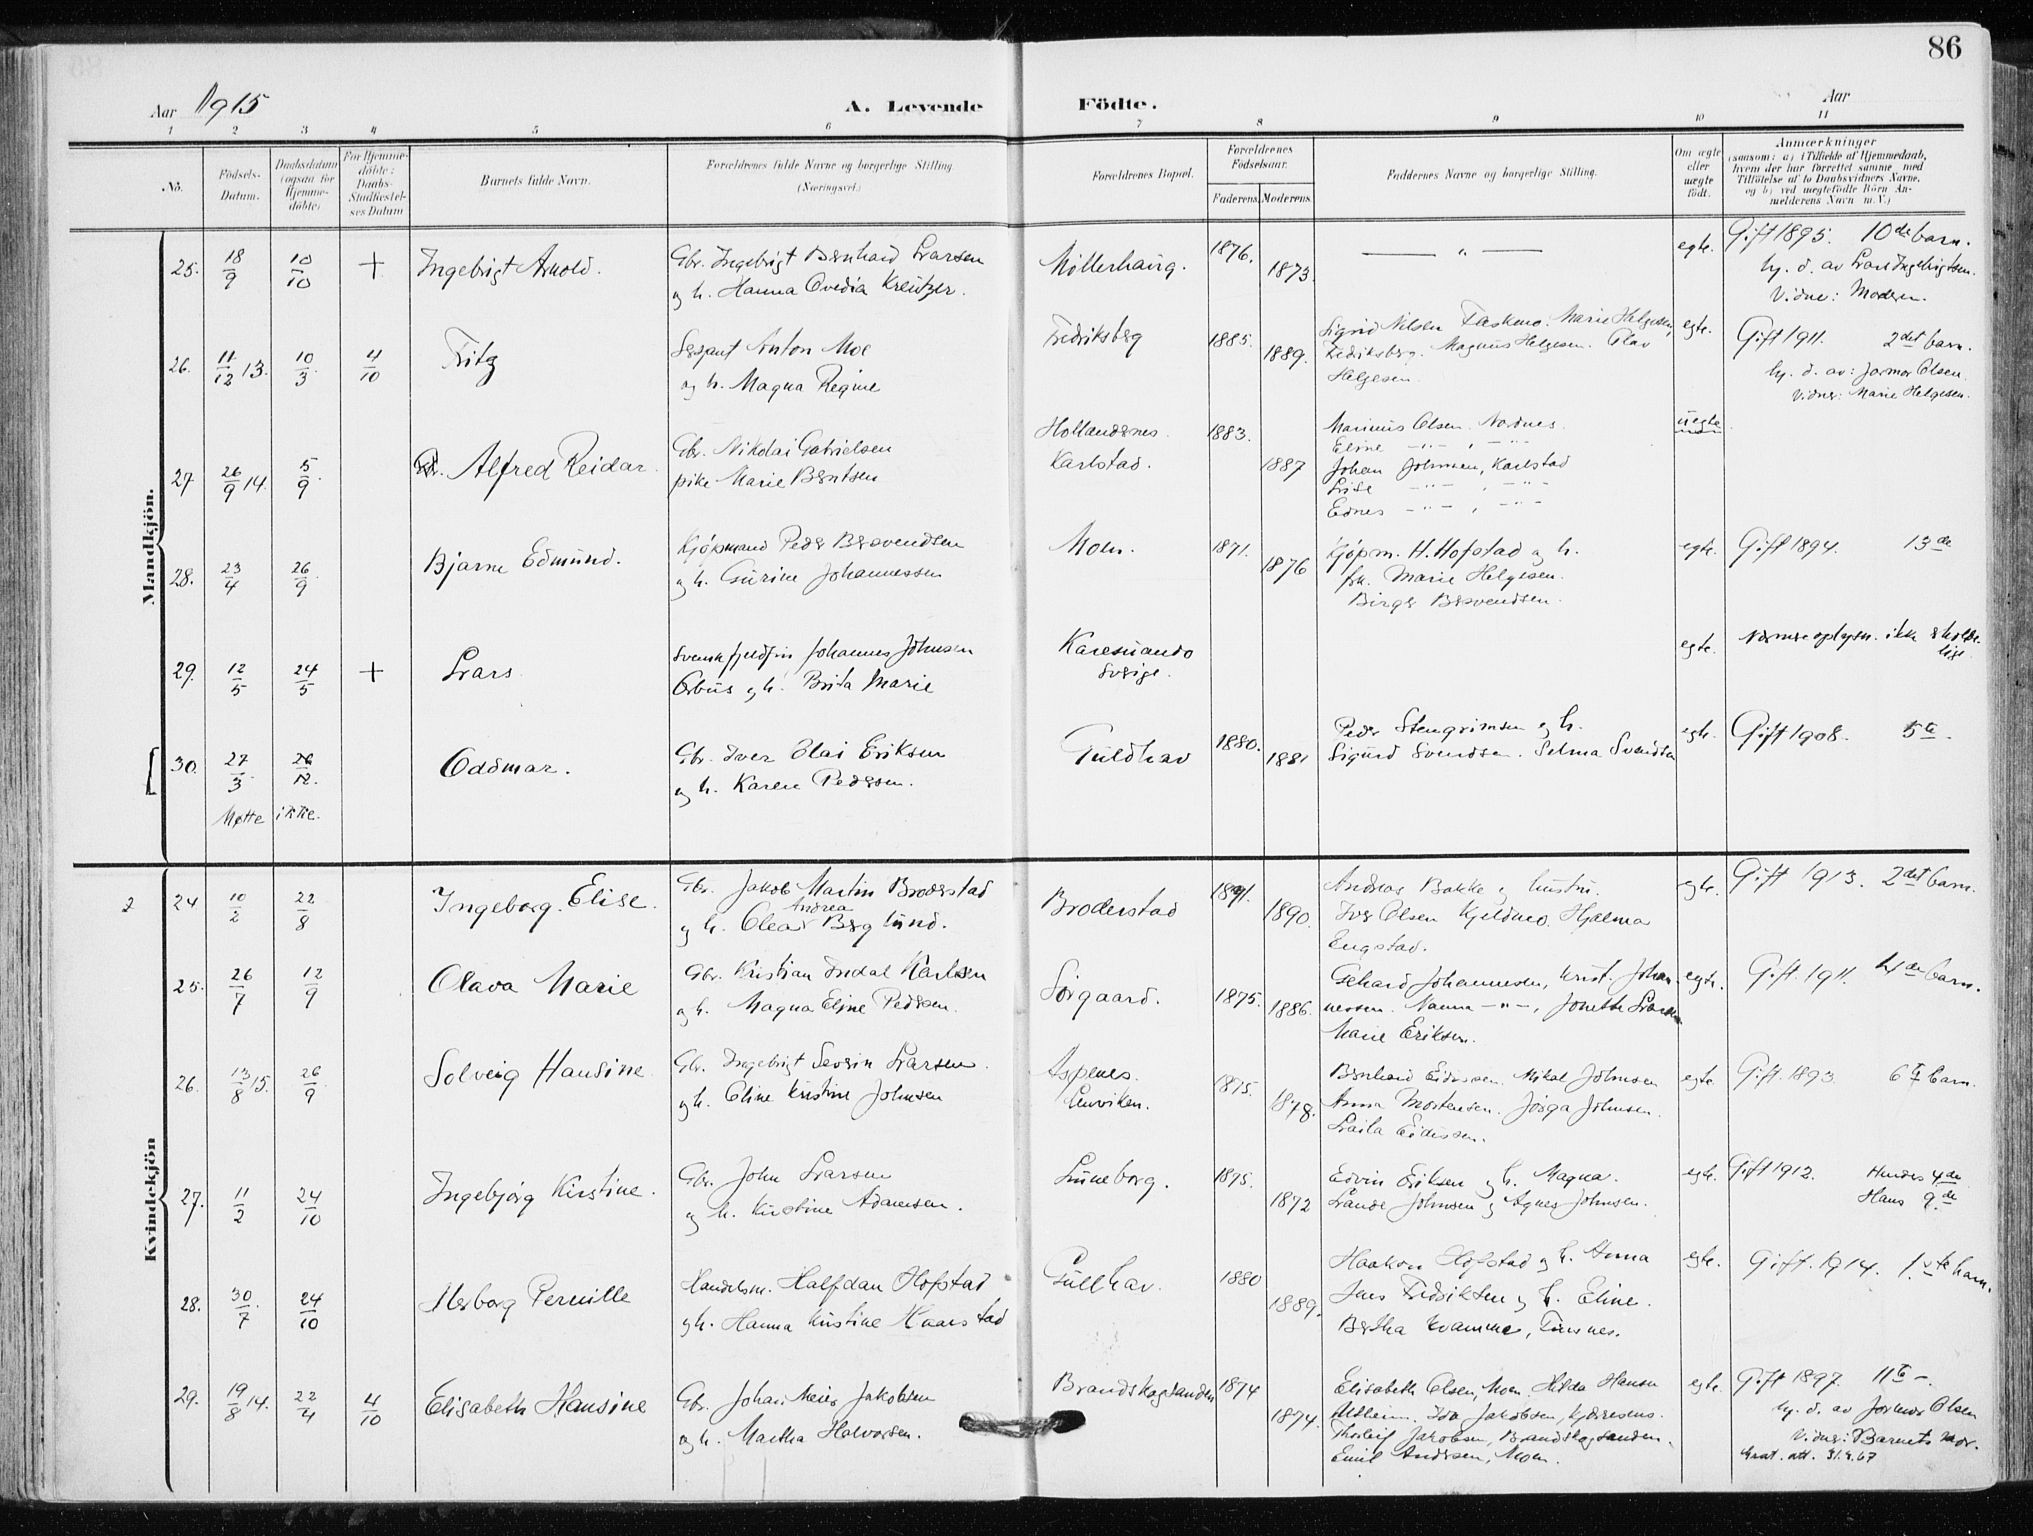 86
Aar 1915
A. Levende Födte.
Aar
1 2 3 4 5 6 7 8 9 10 11
No.
Födsels-Datum.
Daabsdatum (ogsaa for Hjemme-döbte)
For Hjemme-döbte: Daabs-Stadfæstel-ses Datum
Barnets fulde Navn.
Forældrenes fulde Navne og borgerlige Stilling. (Næringsvei.)
Forældrenes Bopæl.
Forældrenes Födselsaar.
Faderens. Moderens.
Faddernes Navne og borgerlige Stilling.
Om ægte eller uægte födt.
Anmærkninger
(saasom: a) i Tilfælde af Hjemmedaab,
hvem der har forrettet samme med
Tilföielse af to Daabsvidners Navne,
og b) ved uægtefödte Börn An-
melderens Navn m. V.)
Mandkjön.
25. 18/9 10/10 + Ingebrigt Arnold.
Gbr. Ingebrigt Bernhard Larsen
og h. Hanna Ovedia Kreutzer.
Möllerhaug. 1876. 1873. — " — egte.
Gift 1895. 10de barn.
hj. d. av Lars Ingebrigtsen.
Vidne: Moderen.
26. 11/12 13. 10/3. 4/10 Fritz
Sersjant Anton Moe
og h. Magna Regine
Fredriksberg 1885. 1889.
Sigrid Nilsen Taskmo. Marie Helgesen,
Fredriksberg. Magnus Helgesen. Olav
Helgesen.
egte.
Gift 1911. 2det barn.
hj. d. av: Jormor Olsen.
Vidner: Marie Helgesen.
27 26/9 14. 5/9. Alfred Reidar.
Gbr. Nikolai Gabrielsen
pike Marie Berntsen
Hollandsnes.
Karlstad.
1883. 1887
Marinus Olsen. Nordnes.
Eline — " — , — " —
Johan Johnsen, Karlstad
Lise — " — , — " —
Ednes — " — , — " —
uegte
28. 23/4 26/9. Bjarne Edmund.
Kjöpmand Peder Bersvendsen
og h. Gurine Johannessen
Moen. 1871. 1876
Kjöpm. H. Hofstad og h.
frk. Marie Helgesen.
Birger Bersvendsen.
egte. Gift 1894. 13de
29. 12/5 24/5 + Lars
Svensk fjeldfin Johannes Johnsen
Orbus og h. Brita Marie
Karesuando
Sverige.
egte. Nærmere oplysn. ikke
30. 27/3. 26/12. Oddmar.
Gbr. Iver Olai Eriksen
og h. Karen Pedersen.
Guldhav 1880. 1881
Peder Stengrimsen og h.
Sigurd Svendsen. Selma Svendsen
egte. Gift 1908. 5te.
Møtte ikke.
Kvindekjön
2 24 10/2 22/8 Ingeborg Elise.
Gbr. Jakob Martin Broderstad
og h. Olea Andrea Berglund.
Broderstad 1891. 1890.
Andreas Bakke og hustru.
Iver Olsen Kjeldmo. Hjelma
Engstad.
egte. Gift 1913. 2det barn.
25. 26/7 12/9 Olava Marie
Gbr. Kristian Indal Karlsen
og h. Magna Eline Pedersen.
Sörgaard. 1875. 1886.
Gehard Johannesen, Krist. Johan-
nessen. Nanna — " —, Jonette Larsen
Marie Eriksen.
egte. Gift. 1911. 4de barn.
26. 13/8 15. 26/9 Solveig Hansine
Gbr. Ingebrigt Severin Larsen.
og h. Oline Kristine Johnsen
Aspenes.
Lenviken.
1875. 1878.
Bernhard Eidissen. Mikal Johnsen
Anna Mortensen. Jörga Johnsen.
Laila Eidissen.
egte. Gift. 1893. 6te barn.
27. 11/2 24/10 Ingebjörg Kirstine.
Gbr. John Larsen
og h. Kirstine Adamsen.
Luneborg. 1875. 1872
Edvin Eriksen og h. Magna.
Lande Johnsen og Agnes Johnsen.
egte. Gift 1912. Hendes 4de
Hans 9.de
28. 30/7. 24/10 Herborg Pernille
Handelsm. Halfdan Hofstad
og h. Hanna Kirstine Haarstad
Gullhav. 1880 1889.
Haakon Hofstad og h. Anna
Jens Fredriksen og h. Eline.
Bertha Kvamme, Finsnes.
egte. Gift. 1914. 1.ste barn.
29. 19/8 14. 22/4 4/10 Elisabeth Hansine
Gbr. Johan Meier Jakobsen
og h. Martha Halvorsen.
Brandskogsanden 1874 1874.
Elisabeth Olsen, Moen. Hilda Hansen
Ida Jakobsen, Kjerresnes.
Thorleif Jakobsen, Brandskogsanden.
Emil Andersen, Moen.
egte. Gift 1897. 11te —.
hj. d. av Jormor Olsen
Vidner: Barnets mor.
att. 31.4.67